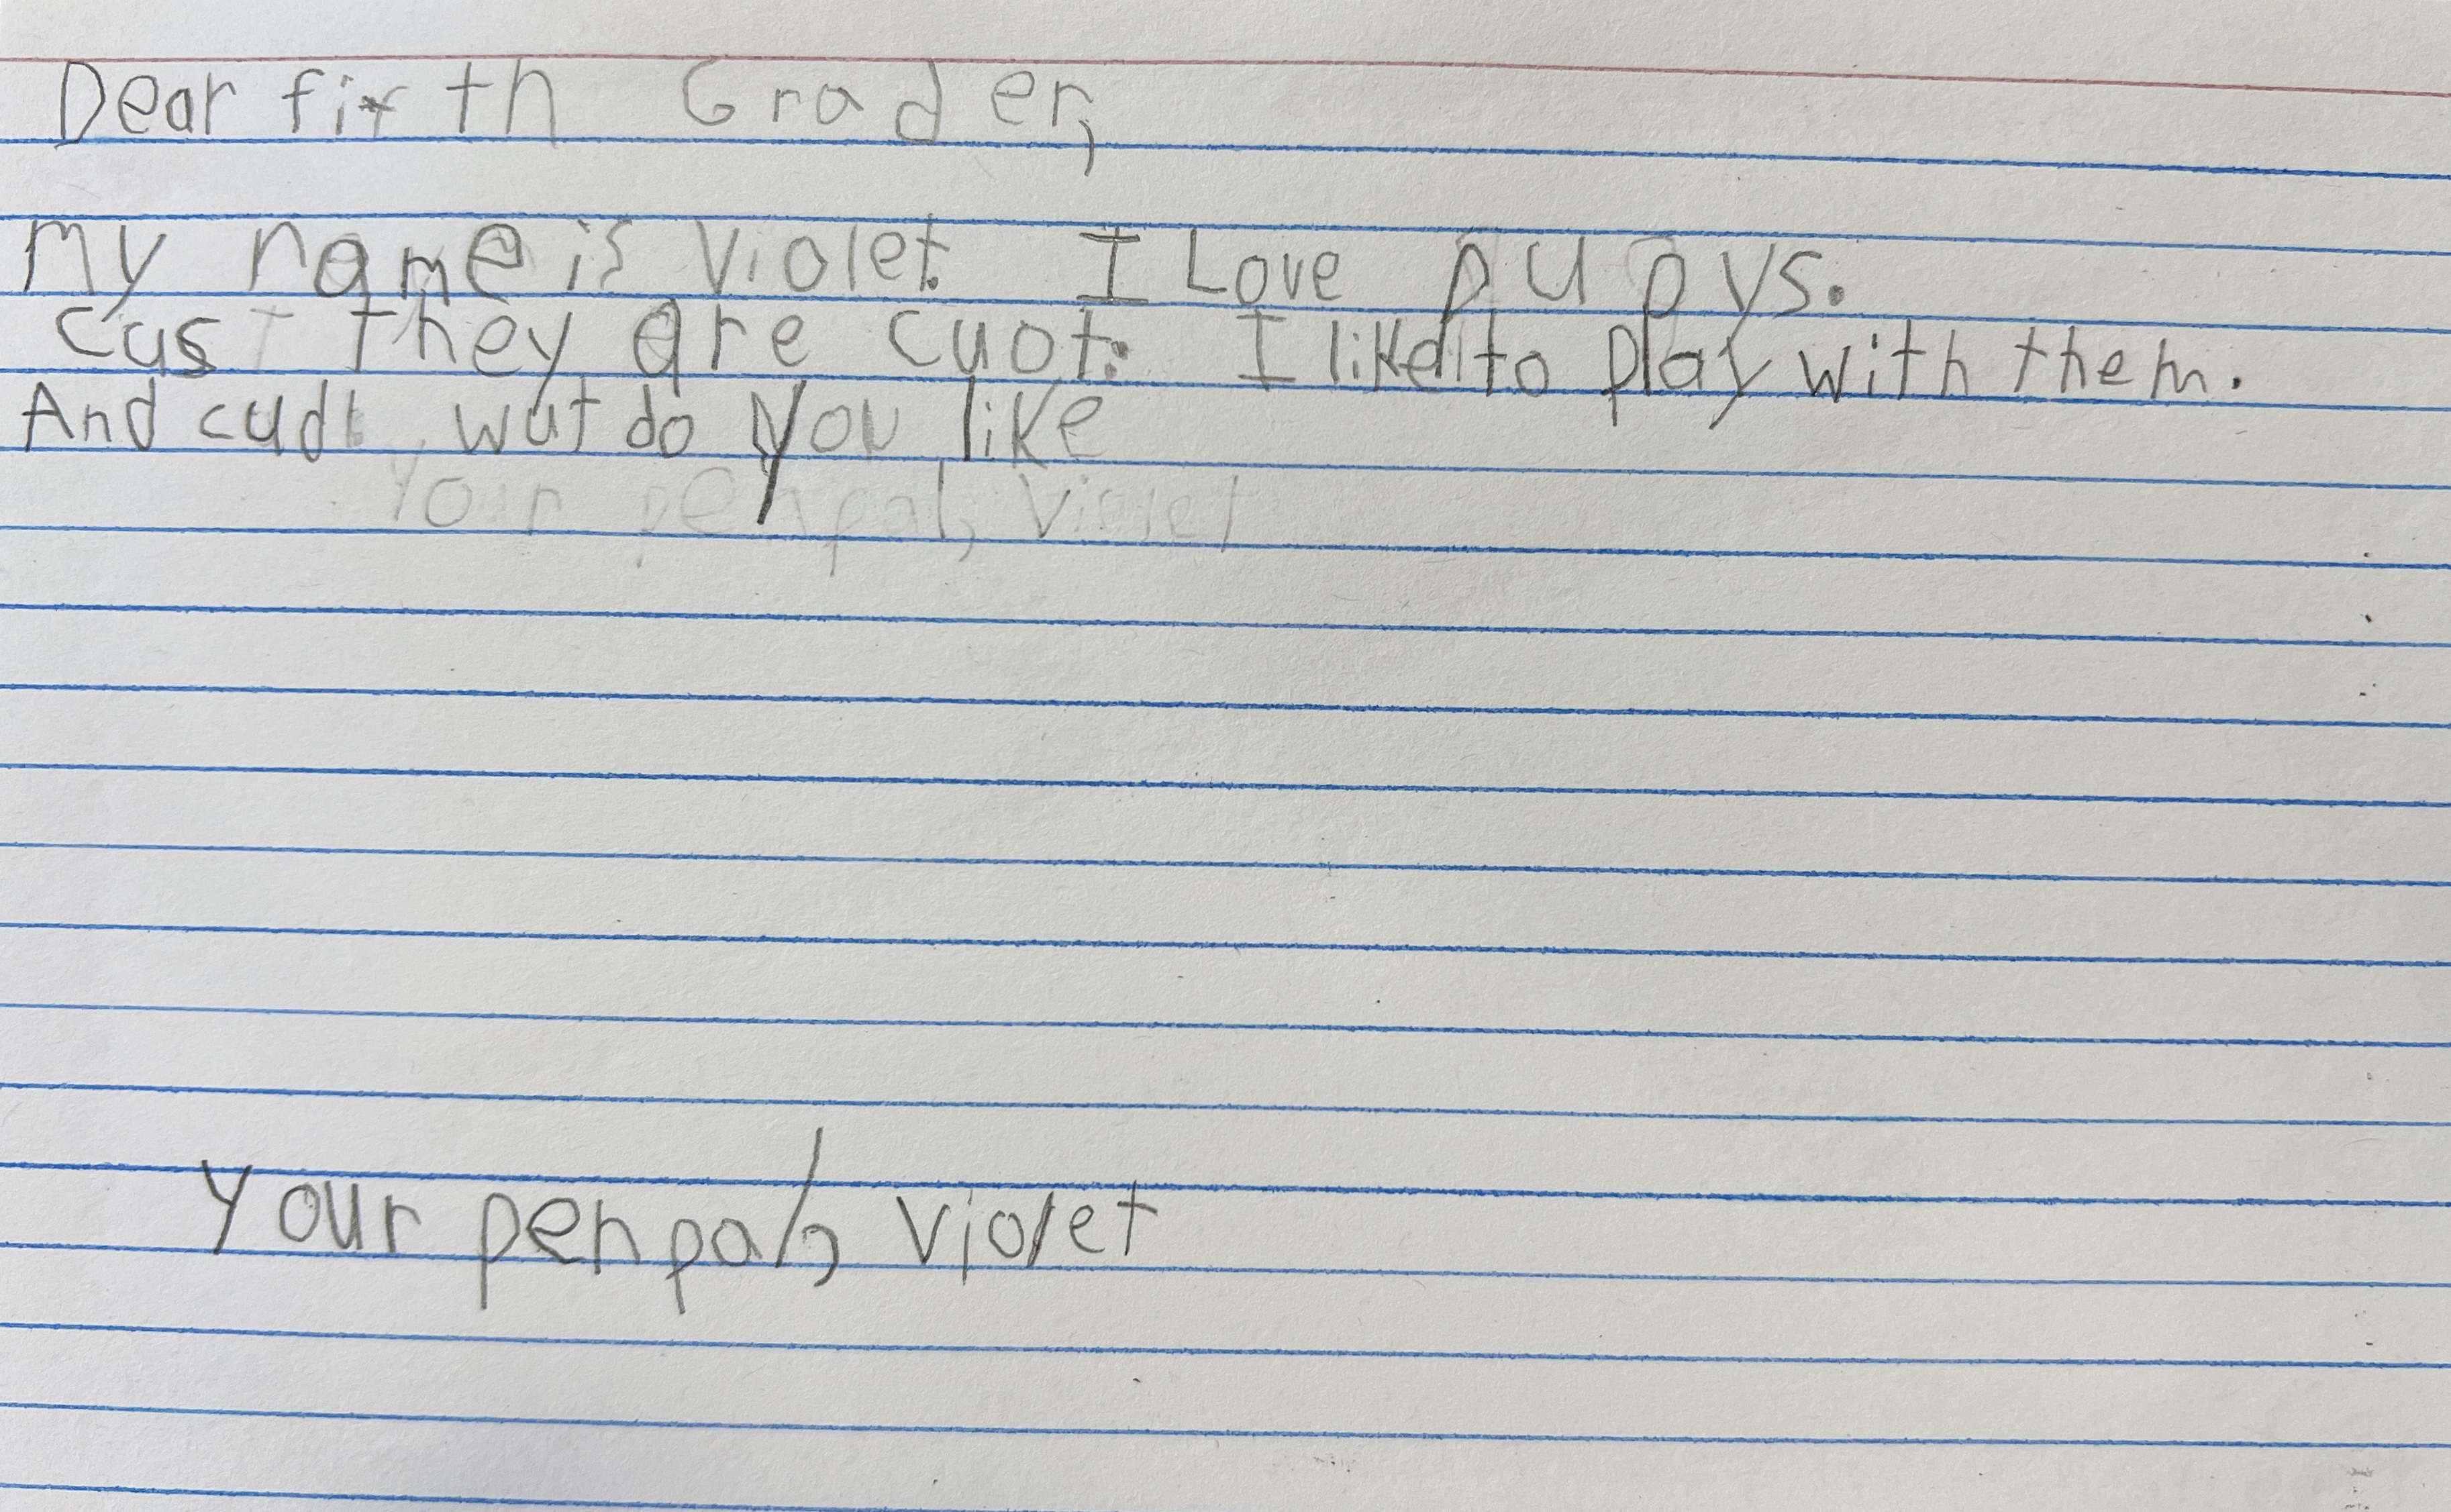 Dear fifth Grader,
my name is Violet. I Love pupys.
cus they are cuot. I like to play with them.
And cudl wut do you like
Your penpal, Violet
Your penpal, Violet